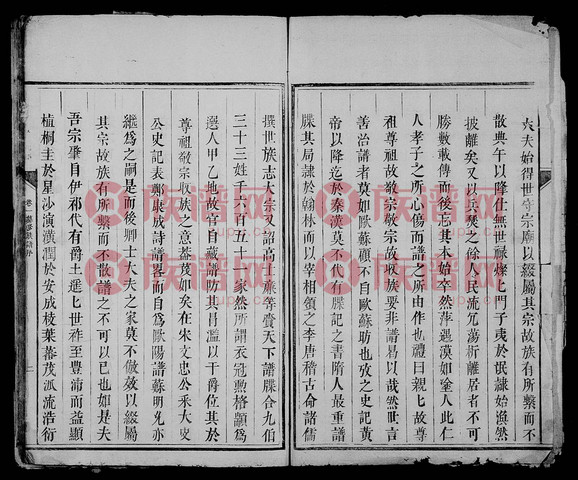 大夫始得世守宗廟以綴屬其宗故族有所繫而不
散典午以降仕無世祿燦比門子夷於氓隸始渙然
披離矣又以兵燹之餘人民流冗蕩析離居者不可
勝數載傳而後忘其本始卒然萍遇漠如塗人此仁
人孝子之所心傷而譜之所由作也禮曰親親故尊
祖尊祖故敬宗敬宗故收族要非譜易以哉然世言
善治譜者莫如歐蘇顧不自歐蘇昉也攷之史記黃
帝以降迄於秦漢莫不代有牒記之書隋人最重譜
牒其局隸於翰林而以宰相領之李唐稽古命諸儒
撰世族志大宗又詔高士廉等責天下譜牒合九伯
三十三姓千六百五十一家然所謂衣冠勲格顓為
選人甲乙地故官自藏譜防其冒濫以干爵位其於
尊祖敬宗收族之意葢茂如矣在朱文忠公釆大史
公史記表鄭
詩譜畧而自為歐陽譜蘇明允亦
繼為之嗣是而後卿士大夫之家莫不倣效以綴屬
其宗故族有所繫而不散譜之不可以已也如是夫
吾宗肇自伊祁代有爵土逛匕世祚至豊沛而益顯
植桐圭於星沙演潢潤於安成枝葉蕃茂派流浩衍
族谱网